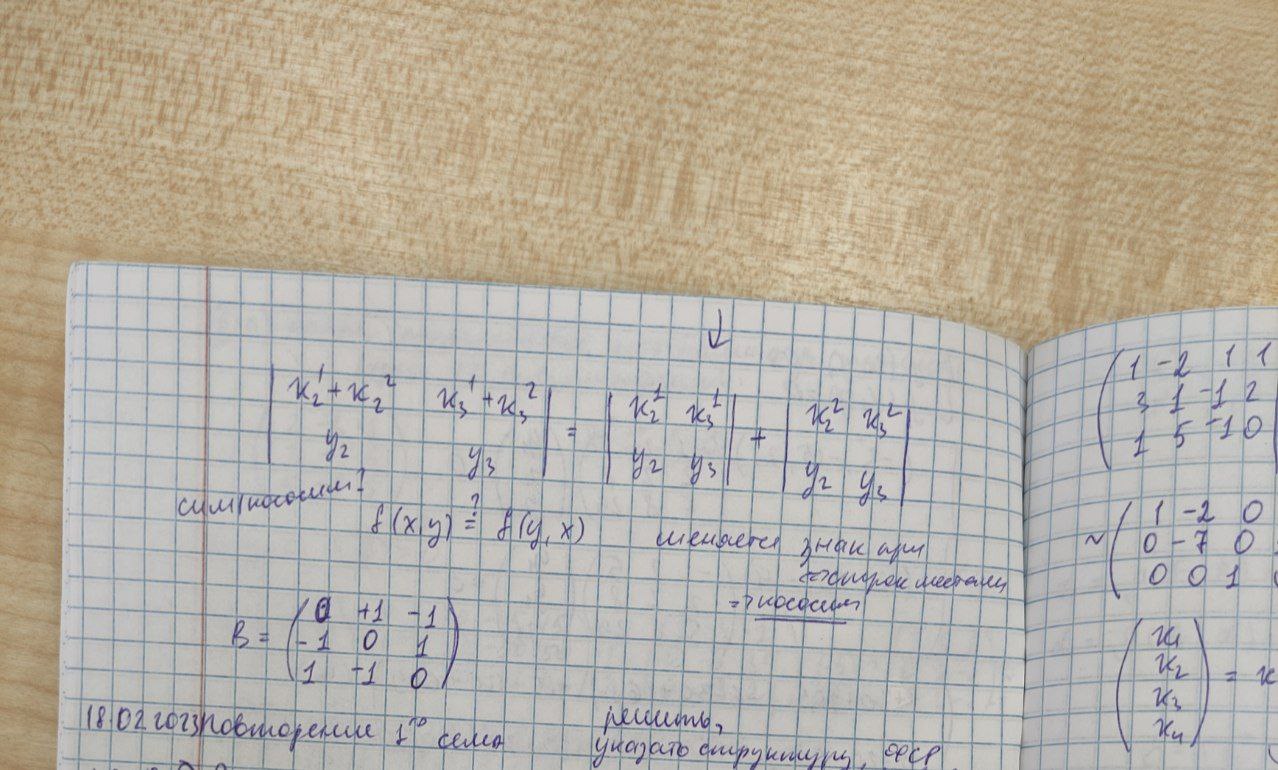 ↓
| x₂¹ + x₂²   x₃¹ + x₃² | = | x₂¹  x₃¹ | + | x₂²  x₃² |
| y₂   y₃ |   | y₂  y₃ |   | y₂  y₃ |
сим/кососим?
f(x,y) ≟ f(y,x)
меняется знак при
↔ строк местами
⇒ кососим
B = ( 0  +1  -1
-1  0  1
1  -1  0 )
18.02 повторение 1го сема
решить,
указать структуру, ФСР
( 1  -2  1  1
3  1  -1  2
1  5  -1  0
~ ( 1  -2  0
0  -7  0
0  0  1
( x₁
x₂
x₃
x₄ ) = x